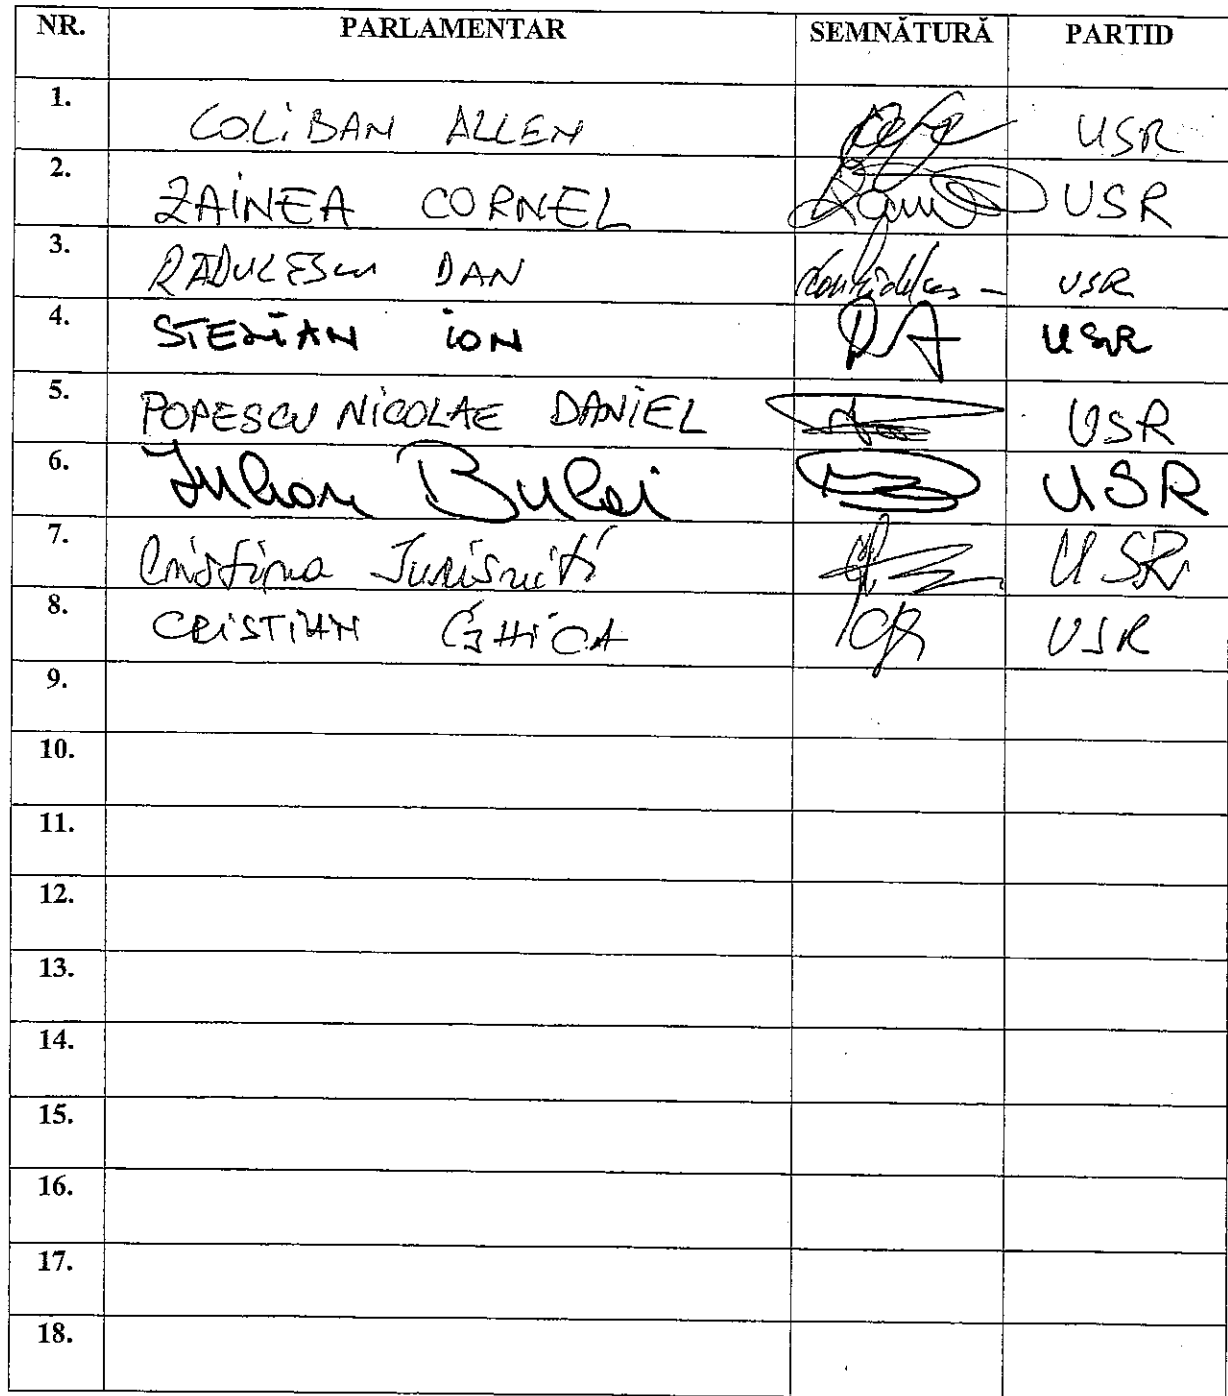 NR. PARLAMENTAR SEMNĂTURĂ PARTID
1. COLIBAN ALLEN USR
2. ZAINEA CORNEL USR
3. RADULESCU DAN USR
4. STELIAN ION USR
5. POPESCU NICOLAE DANIEL USR
6. Iulian Bulai USR
7. Cristina Iurisniti USR
8. CRISTIAN GHICA USR
9.
10.
11.
12.
13.
14.
15.
16.
17.
18.